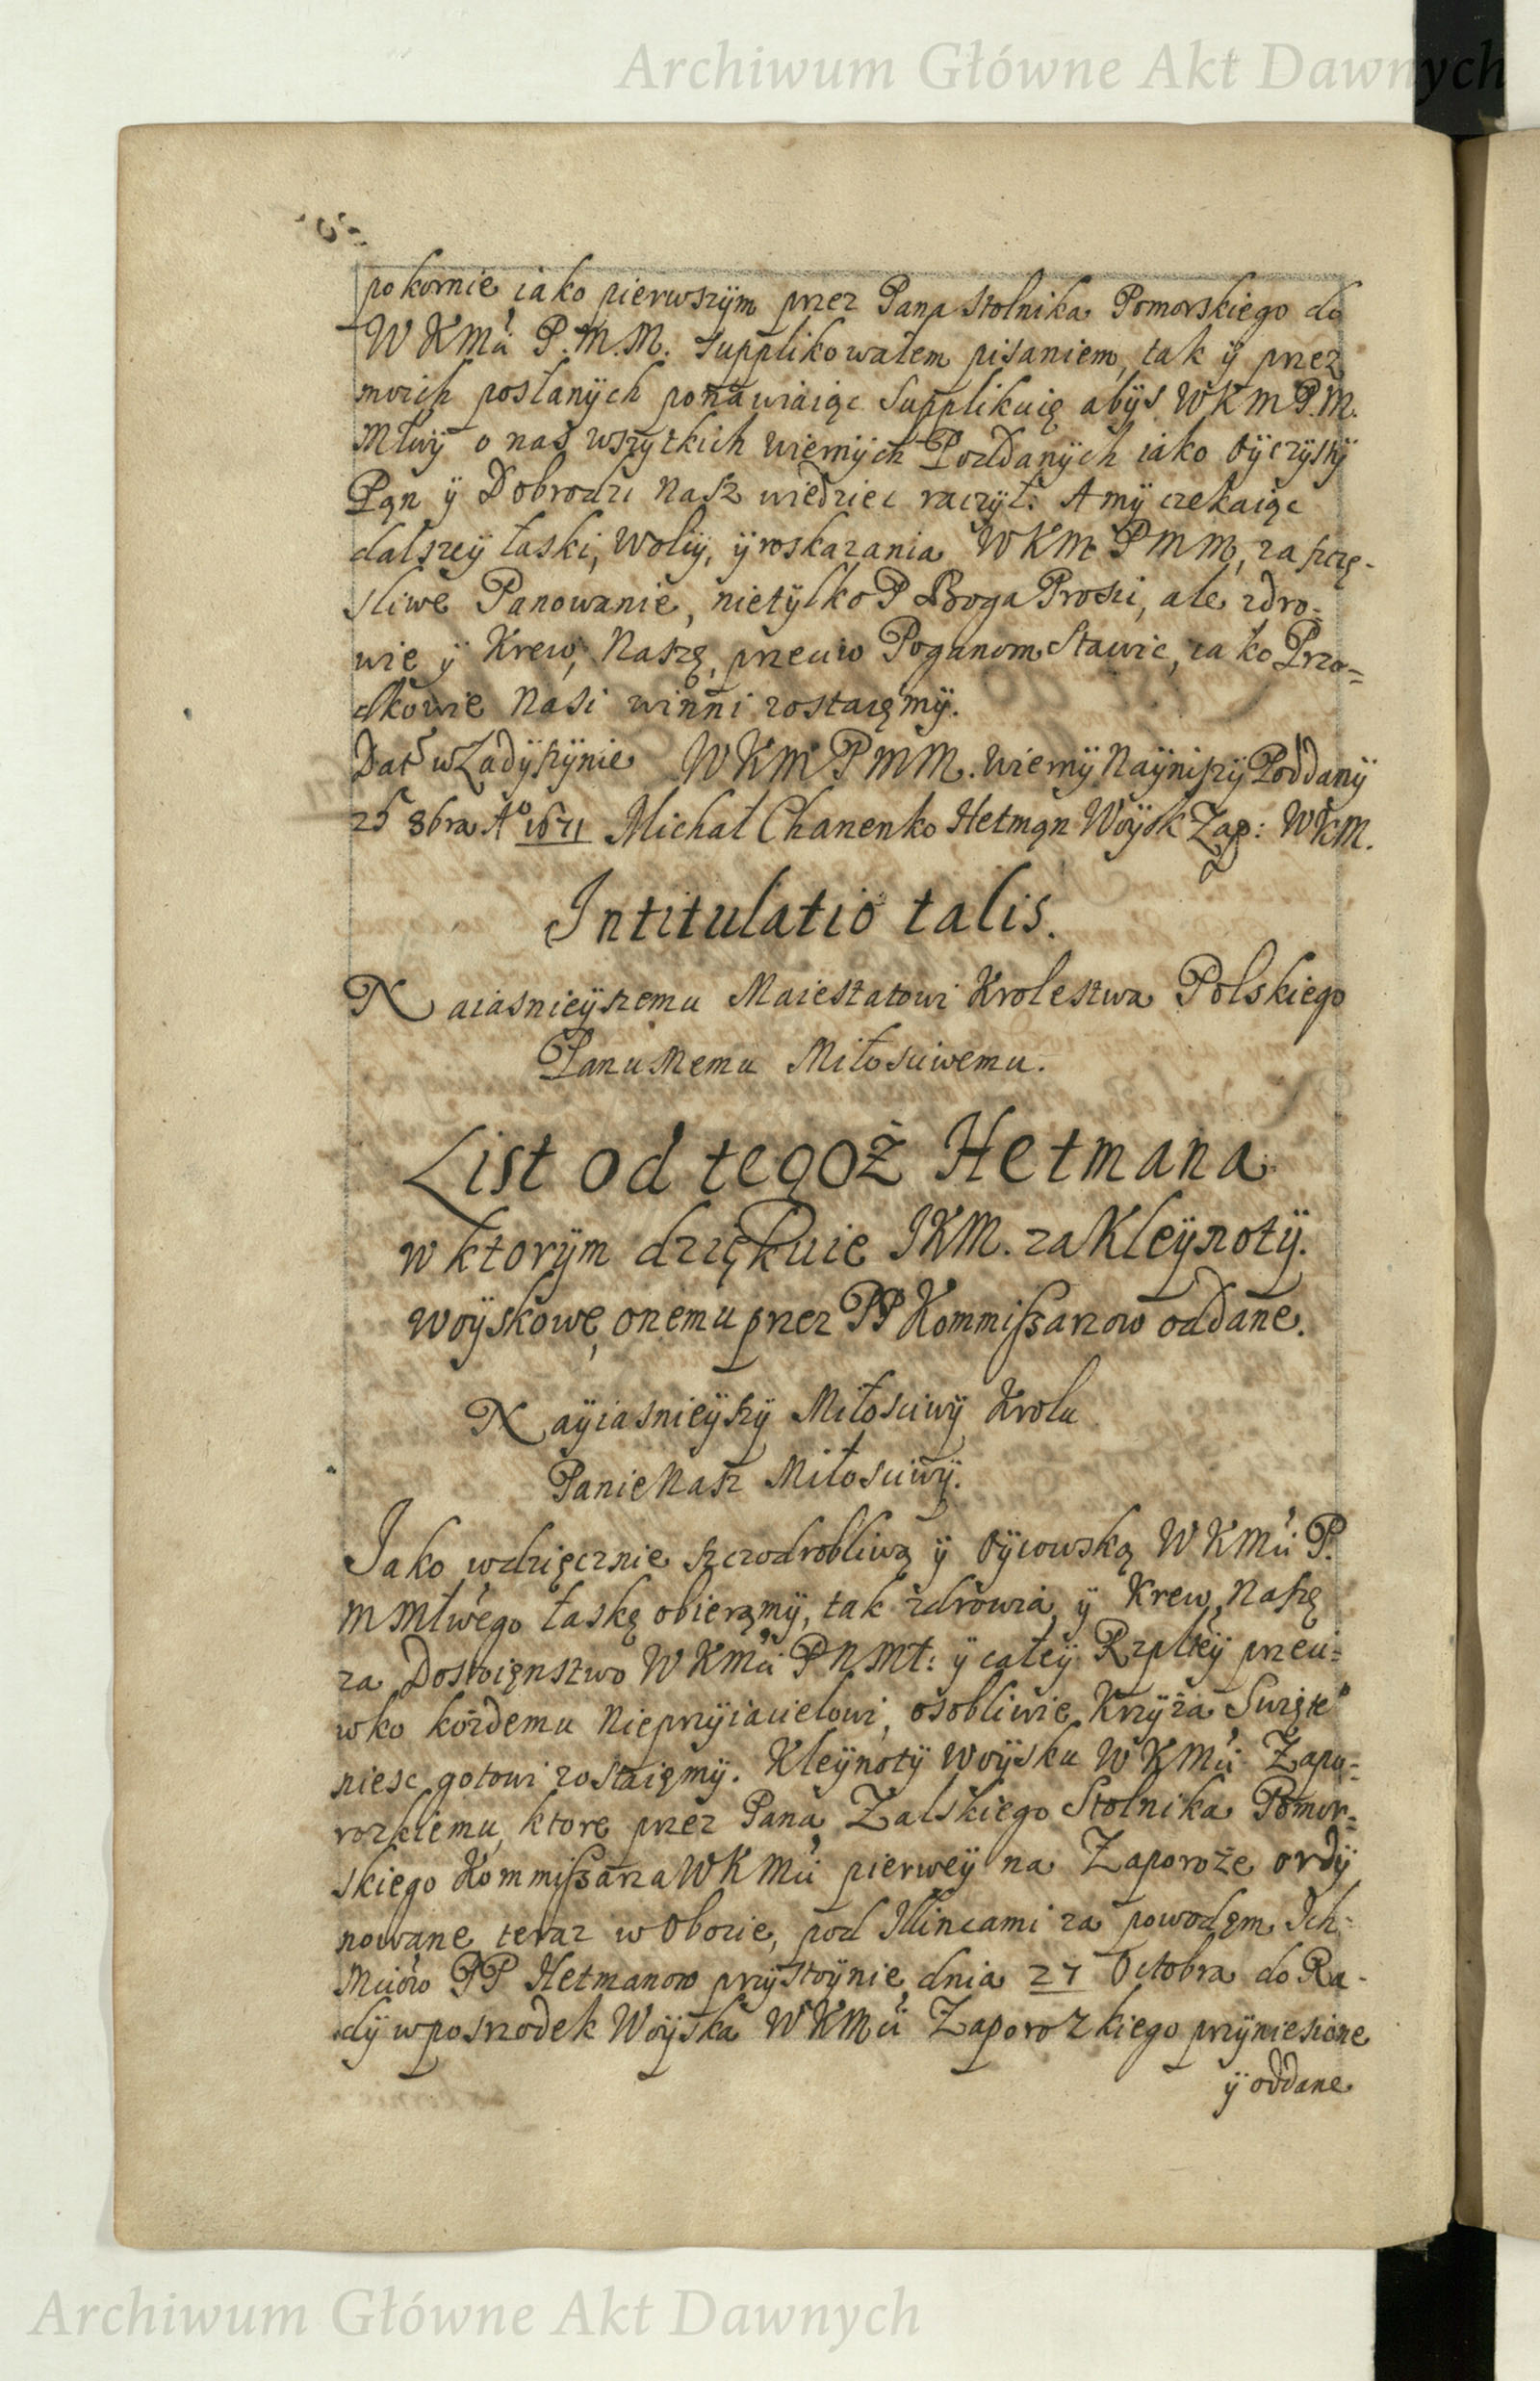 Archiwum Główne Akt Dawnych
pokornie iako pierwszÿm przez Pana Stolnika Pomorskiego do
W K Mći P.M.M. supplikowałem pisaniem, tak ÿ przez
moich posłanÿch ponawiaiąc Supplikuię abÿs W K M P.M.
Młwÿ o nas wszÿtkich wiernÿch Poddanÿch iako Oÿczÿstÿ
Pąn ÿ Dobrodzi Nasz wiedziec raczÿł: A mÿ czekaiąc
dalszeÿ łaski, woliÿ, ÿ roskazania W K M P M M, za szczę-
sliwe Panowanie, nietÿlko P Boga Prosić, ale zdro-
wie ÿ Krew, Naszę, przeciw Poganom Stawic, iako Przo=
dkowie Nasi winni zostaięmÿ.
Dat w Ladÿżÿnie W K M P M M. wiernÿ Naÿniszÿ Poddanÿ
25 8bra Aº 1671 Michał Chanenko Hetmąn Woÿsk Zap: W K M.
Intitulatio talis.
Naiasnieÿszemu Maiestatowi Krolestwa Polskiego
Panu Memu Miłosciwemu.
List od tegoż Hetmana
w ktorÿm dziękuie J K M. za Kleÿnotÿ.
Woÿskowe, onemu przez PP Kommissarzow oddane.
Naÿiasnieÿszÿ Miłosciwÿ Krolu
Panie Nasz Miłosciwÿ.
Jako wdzięcznie szczodrobliwą ÿ Oÿcowską W K Mći P.
M Młwego łaskę obierąmÿ, tak zdrowia ÿ Krew, Naszę
za Dostoięnstwo W K Mći P N Mł: ÿ całeÿ Rzplteÿ przeci=
wko kożdemu Nieprzÿiacielowi, osobliwie Krzÿża Swięte
niesc gotowi zostaięmÿ. Kleÿnotÿ Woÿsku W K Mći Zapo=
rozkiemu, ktore przez Pana Zalskiego Stolnika Pomor=
skiego Kommissarza W K Mći pierweÿ na Zaporoże ordÿ
nowane teraz w Obozie, pod Ilincami za powodęm Ich=
Mciow PP Hetmanow przÿstoÿnie dnia 27 Octobra do Ra-
dÿ w posrzodek Woÿska W K Mći Zaporozkiego przÿniesione
ÿ oddane
Archiwum Główne Akt Dawnych